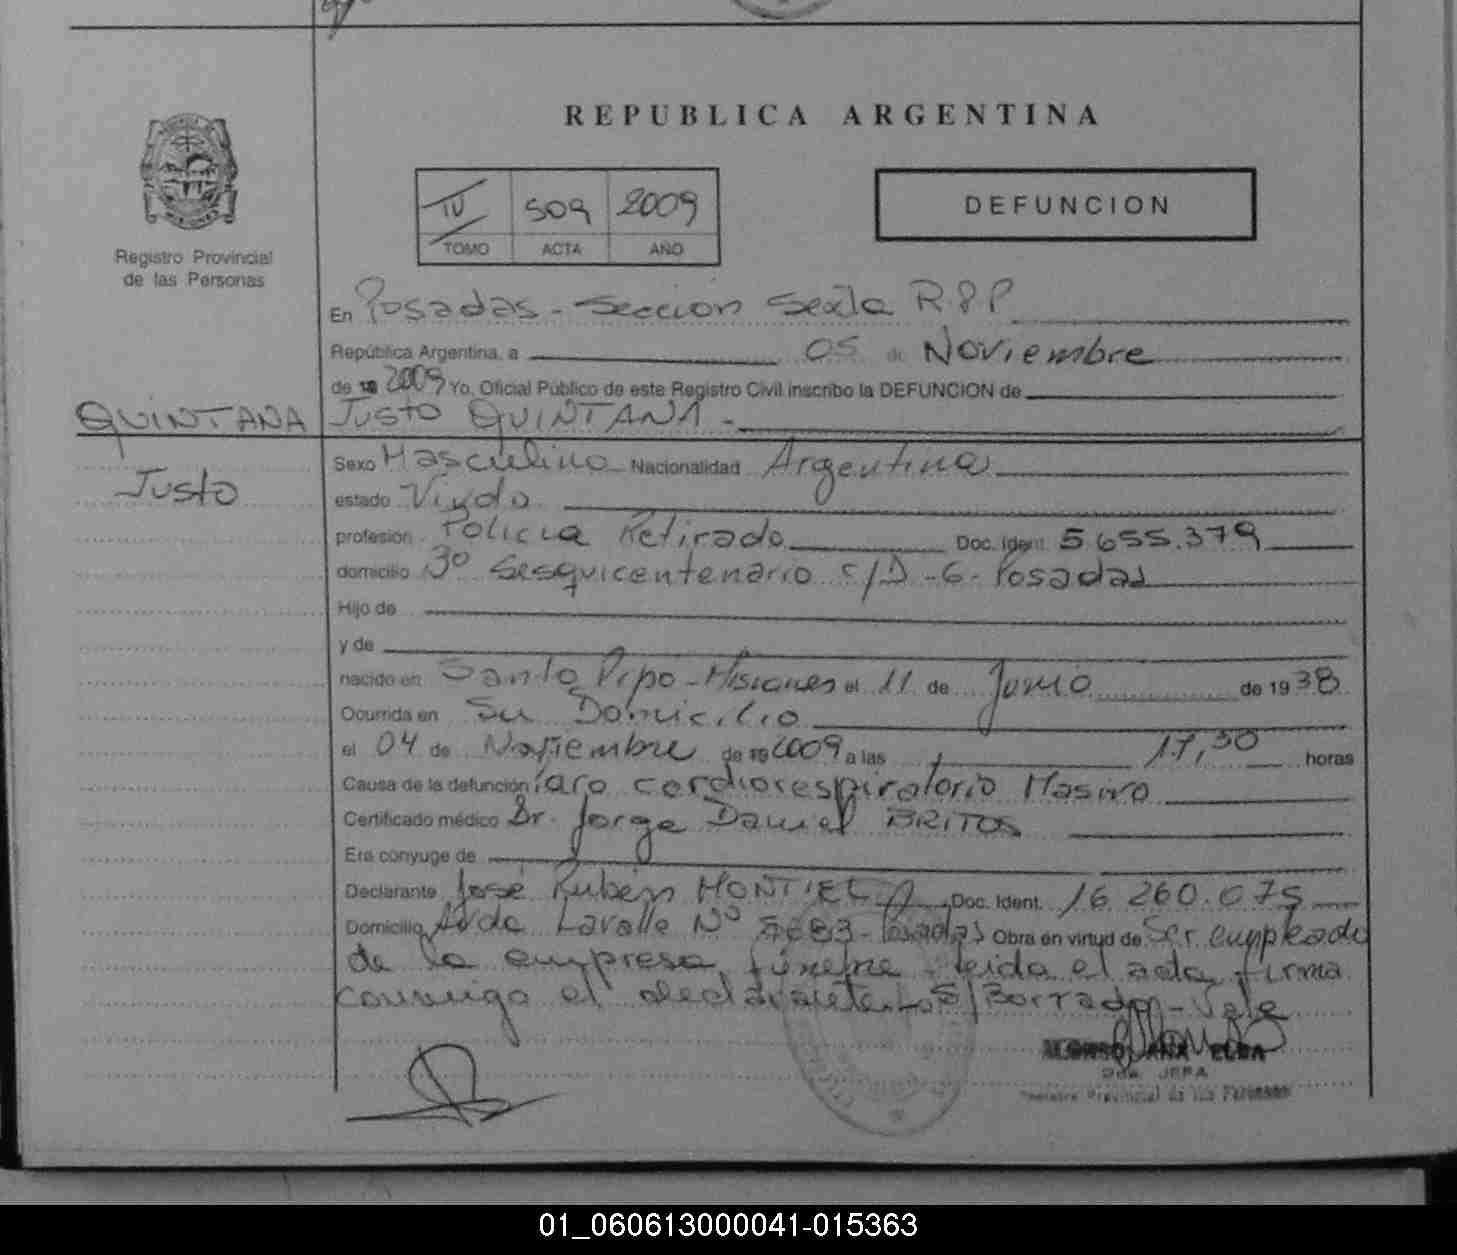 REPUBLICA ARGENTINA
IV 509 2009
TOMO ACTA AÑO
DEFUNCION
Registro Provincial
de las Personas
En Posadas - Sección Sexta R.P.P
República Argentina, a 05 de Noviembre
de 19 2009 Yo, Oficial Público de este Registro Civil inscribo la DEFUNCION de
QUINTANA
Justo
Justo QUINTANA -
Sexo Masculino Nacionalidad Argentina
estado Viudo
profesión Policia Retirado Doc. Ident. 5.655.379
domicilio Sesquicentenario - 6 - Posadas
Hijo de
y de
nacido en Santo Pipo - Misiones el 11 de Junio de 1938
Ocurrida en Su Domicilio
el 04 de Noviembre de 19 2009 a las 17,30 horas
Causa de la defunción Paro cardiorespiratorio Masivo
Certificado médico Dr. Jorge Daniel BRITOS
Era cónyuge de
Declarante José Rubén MONTIEL Doc. Ident. 16.260.075
Domicilio Avda Lavalle Nº Posadas Obra en virtud de Ser empleado
de la empresa fúnebre - leida el acta, firma
conmigo el declarante. S/Borrado - Vale
ANA ELBA
JEFA
Registro Provincial de las Personas
01_060613000041-015363